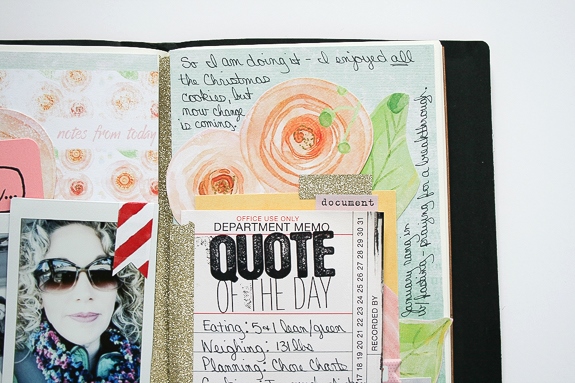 notes from today
So I am doing it - I enjoyed all
the Christmas
cookies, but
now change
is coming.
document
OFFICE USE ONLY
DEPARTMENT MEMO
QUOTE
OF THE DAY
Eating: 5+1 lean/green
Weighing: 131 lbs
Planning: Chore Charts
RECORDED BY
24 25 26 27 28 29 30 31
January hang in
praying for a breakthrough.